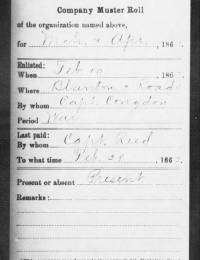 Company Muster Roll
of the organization named above,
for Mch & Apr, 186
Enlisted:
When Feb 10, 186
Where Blanton Road
By whom Capt. Congdon
Period War
Last paid:
By whom Capt. Reed
To what time Feb. 28, 186
Present or absent Present
Remarks: